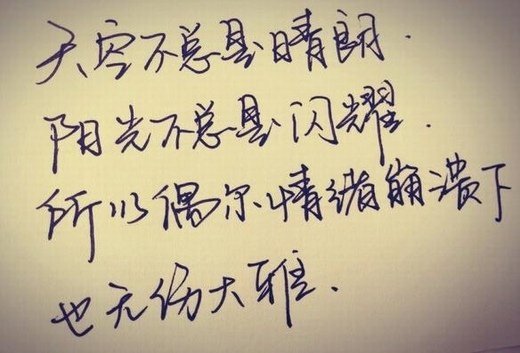 天空不总是晴朗.
阳光不总是闪耀.
所以偶尔情绪崩溃下
也无伤大雅.